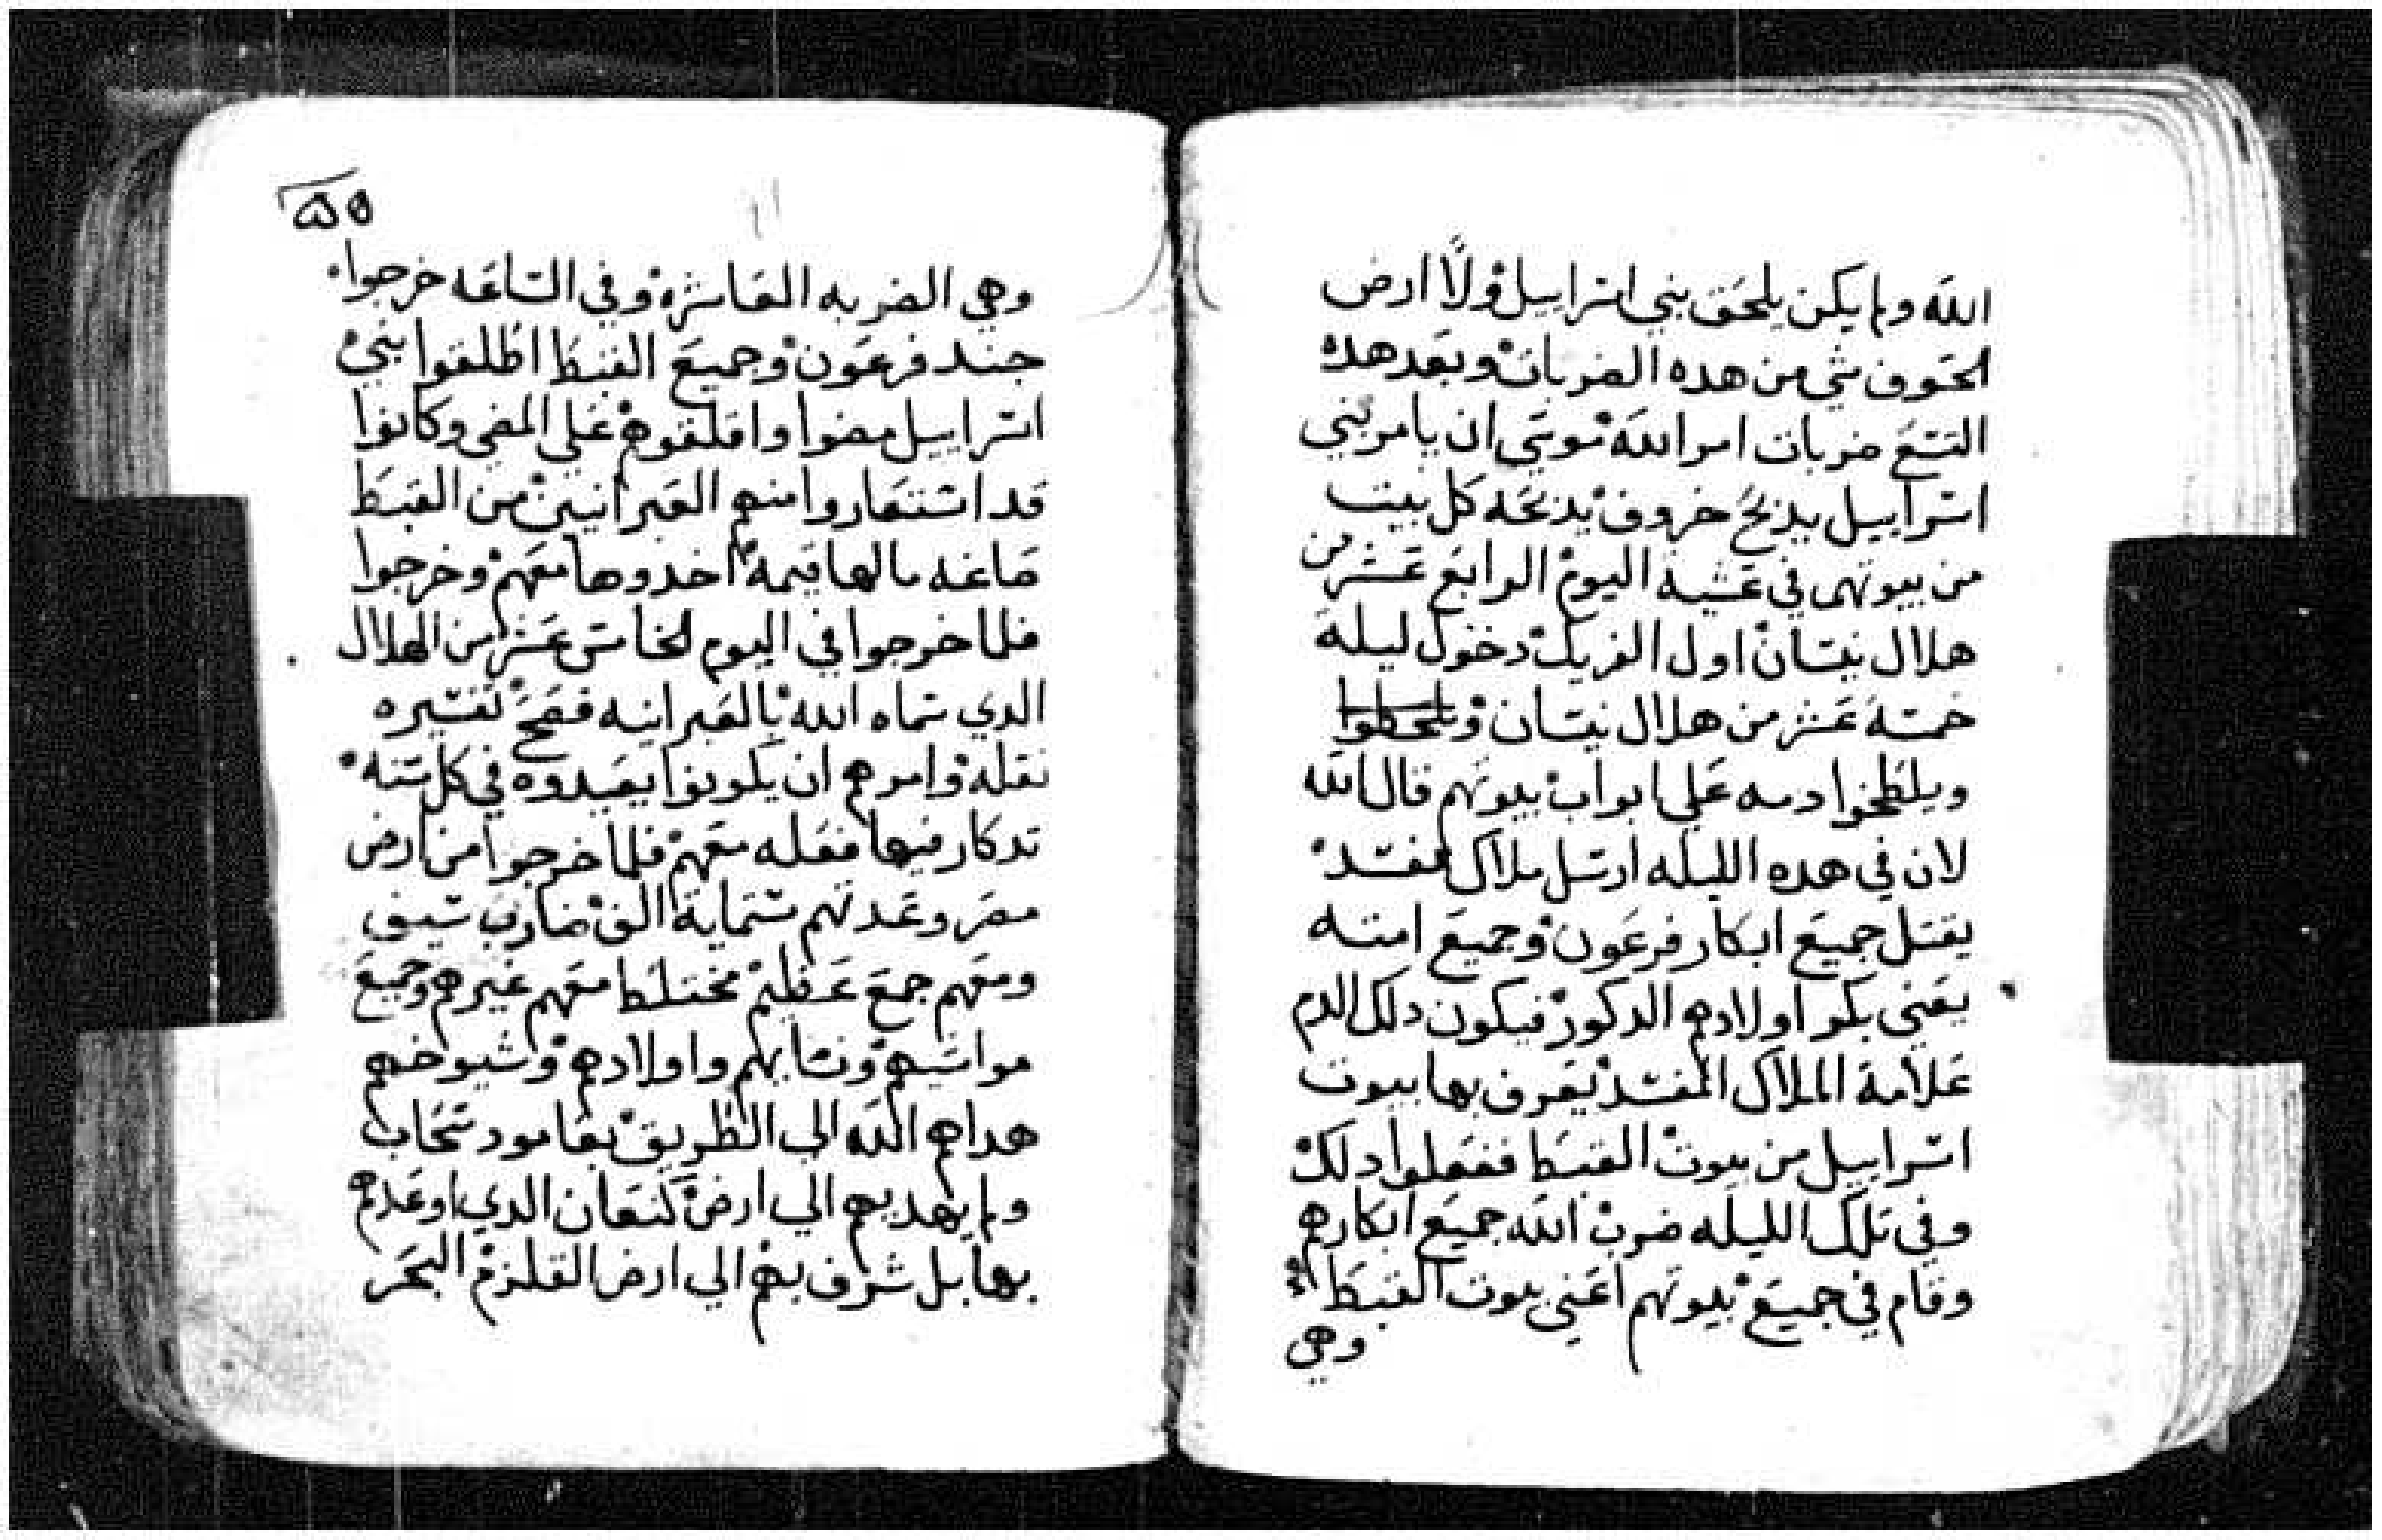 الله ولم يكن يلحق بني اسراييل ولا ارض
الحوف شي من هده الضربات وبعد هده
التسع ضربات امر الله موسي ان يامر بني
اسراييل يدبح خروف يدبحه كل بيت
من بيوتهم في عشية اليوم الرابع عشر من
هلال نيسان اول الفريك دخول ليلة
خمسة عشر من هلال نيسان و
ويلطخوا دمه علي ابواب بيوتهم قال الله
لان في هده الليله ارسل ملاك مفسد
يقتل جميع ابكار فرعون وجميع امته
يعني بكور اولادهم الدكور فيكون دلك الدم
علامة الملاك المفسد يعرف بها بيوت
اسراييل من بيوت القبط ففعلوا دلك
وفي تلك الليله ضرب الله جميع ابكارهم
وقام في جميع بيوتهم اعني بيوت القبط
وهي
وهي الضربه العاشره وفي الساعه خرجوا
جند فرعون وجميع القبط اطلقوا بني
اسراييل مضوا واقلقوهم علي المضي وكانوا
قد استعاروا منهم العبرانيين من القبط
صاغه مالها قيمة اخدوها معهم وخرجوا
فلما خرجوا في اليوم الخامس عشر من الهلال
الدي سماه الله بالعبرانيه فصح تفسيره
نقله وامرهم ان يكونوا يعيدوه في كل سنه
تدكار فيها فعله معهم فلما خرجوا من ارض
مصر وعدتهم ستماية الف ضارب سيف
ومعهم جمع عظيم مختلط معهم غيرهم وجميع
مواشيهم ونسايهم واولادهم وشيوخهم
هداهم الله الي الطريق بعامود سحاب
ولم يهديهم الي ارض كنعان الدي اوعدهم
بها بل شرف بهم الي ارض القلزم البحر